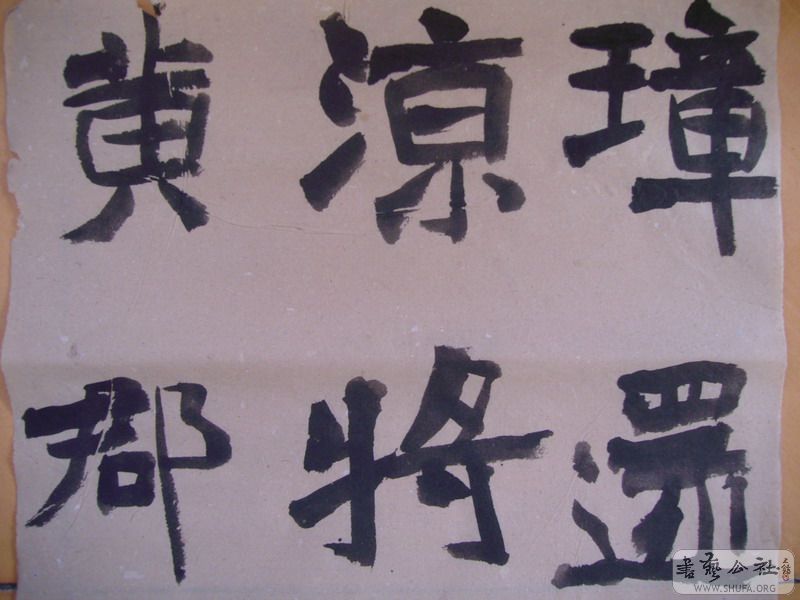 璋還
涼将
黄郡
書藝公社
WWW.SHUFA.ORG